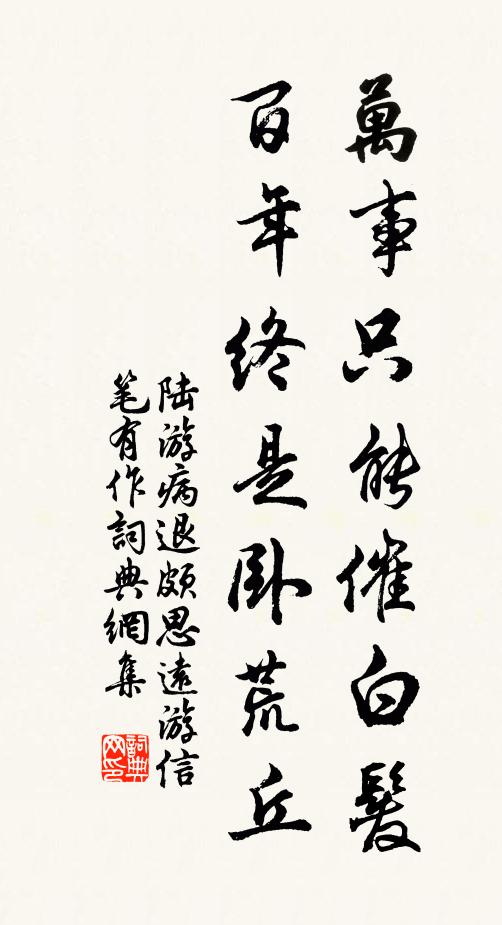 萬事只能催白髮
百年終是卧荒丘
陆游病退颇思遠游信
笔有作詞典網集
詞典
网印